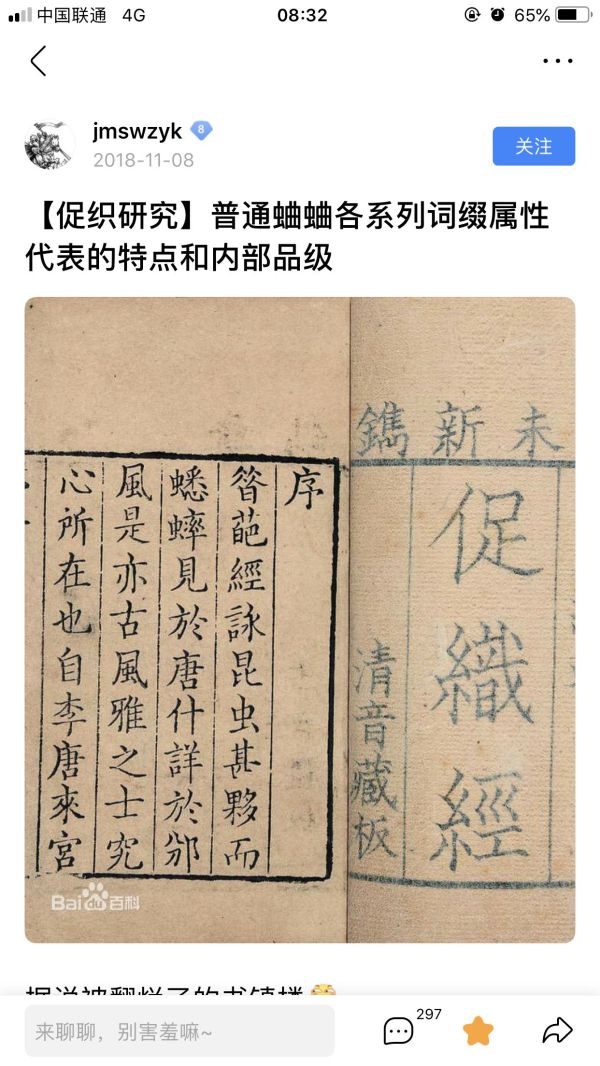 中国联通 4G 08:32 65%
jmswzyk 8
2018-11-08
关注
【促织研究】普通蛐蛐各系列词缀属性
代表的特点和内部品级
未新鐫
促織經
清音藏板
序
昔葩經詠昆虫甚夥而
蟋蟀見於唐什詳於邠
風是亦古風雅之士究
心所在也自李唐來宮
Baidu百科
据说被翻烂了的书镇楼
来聊聊，别害羞嘛~
297